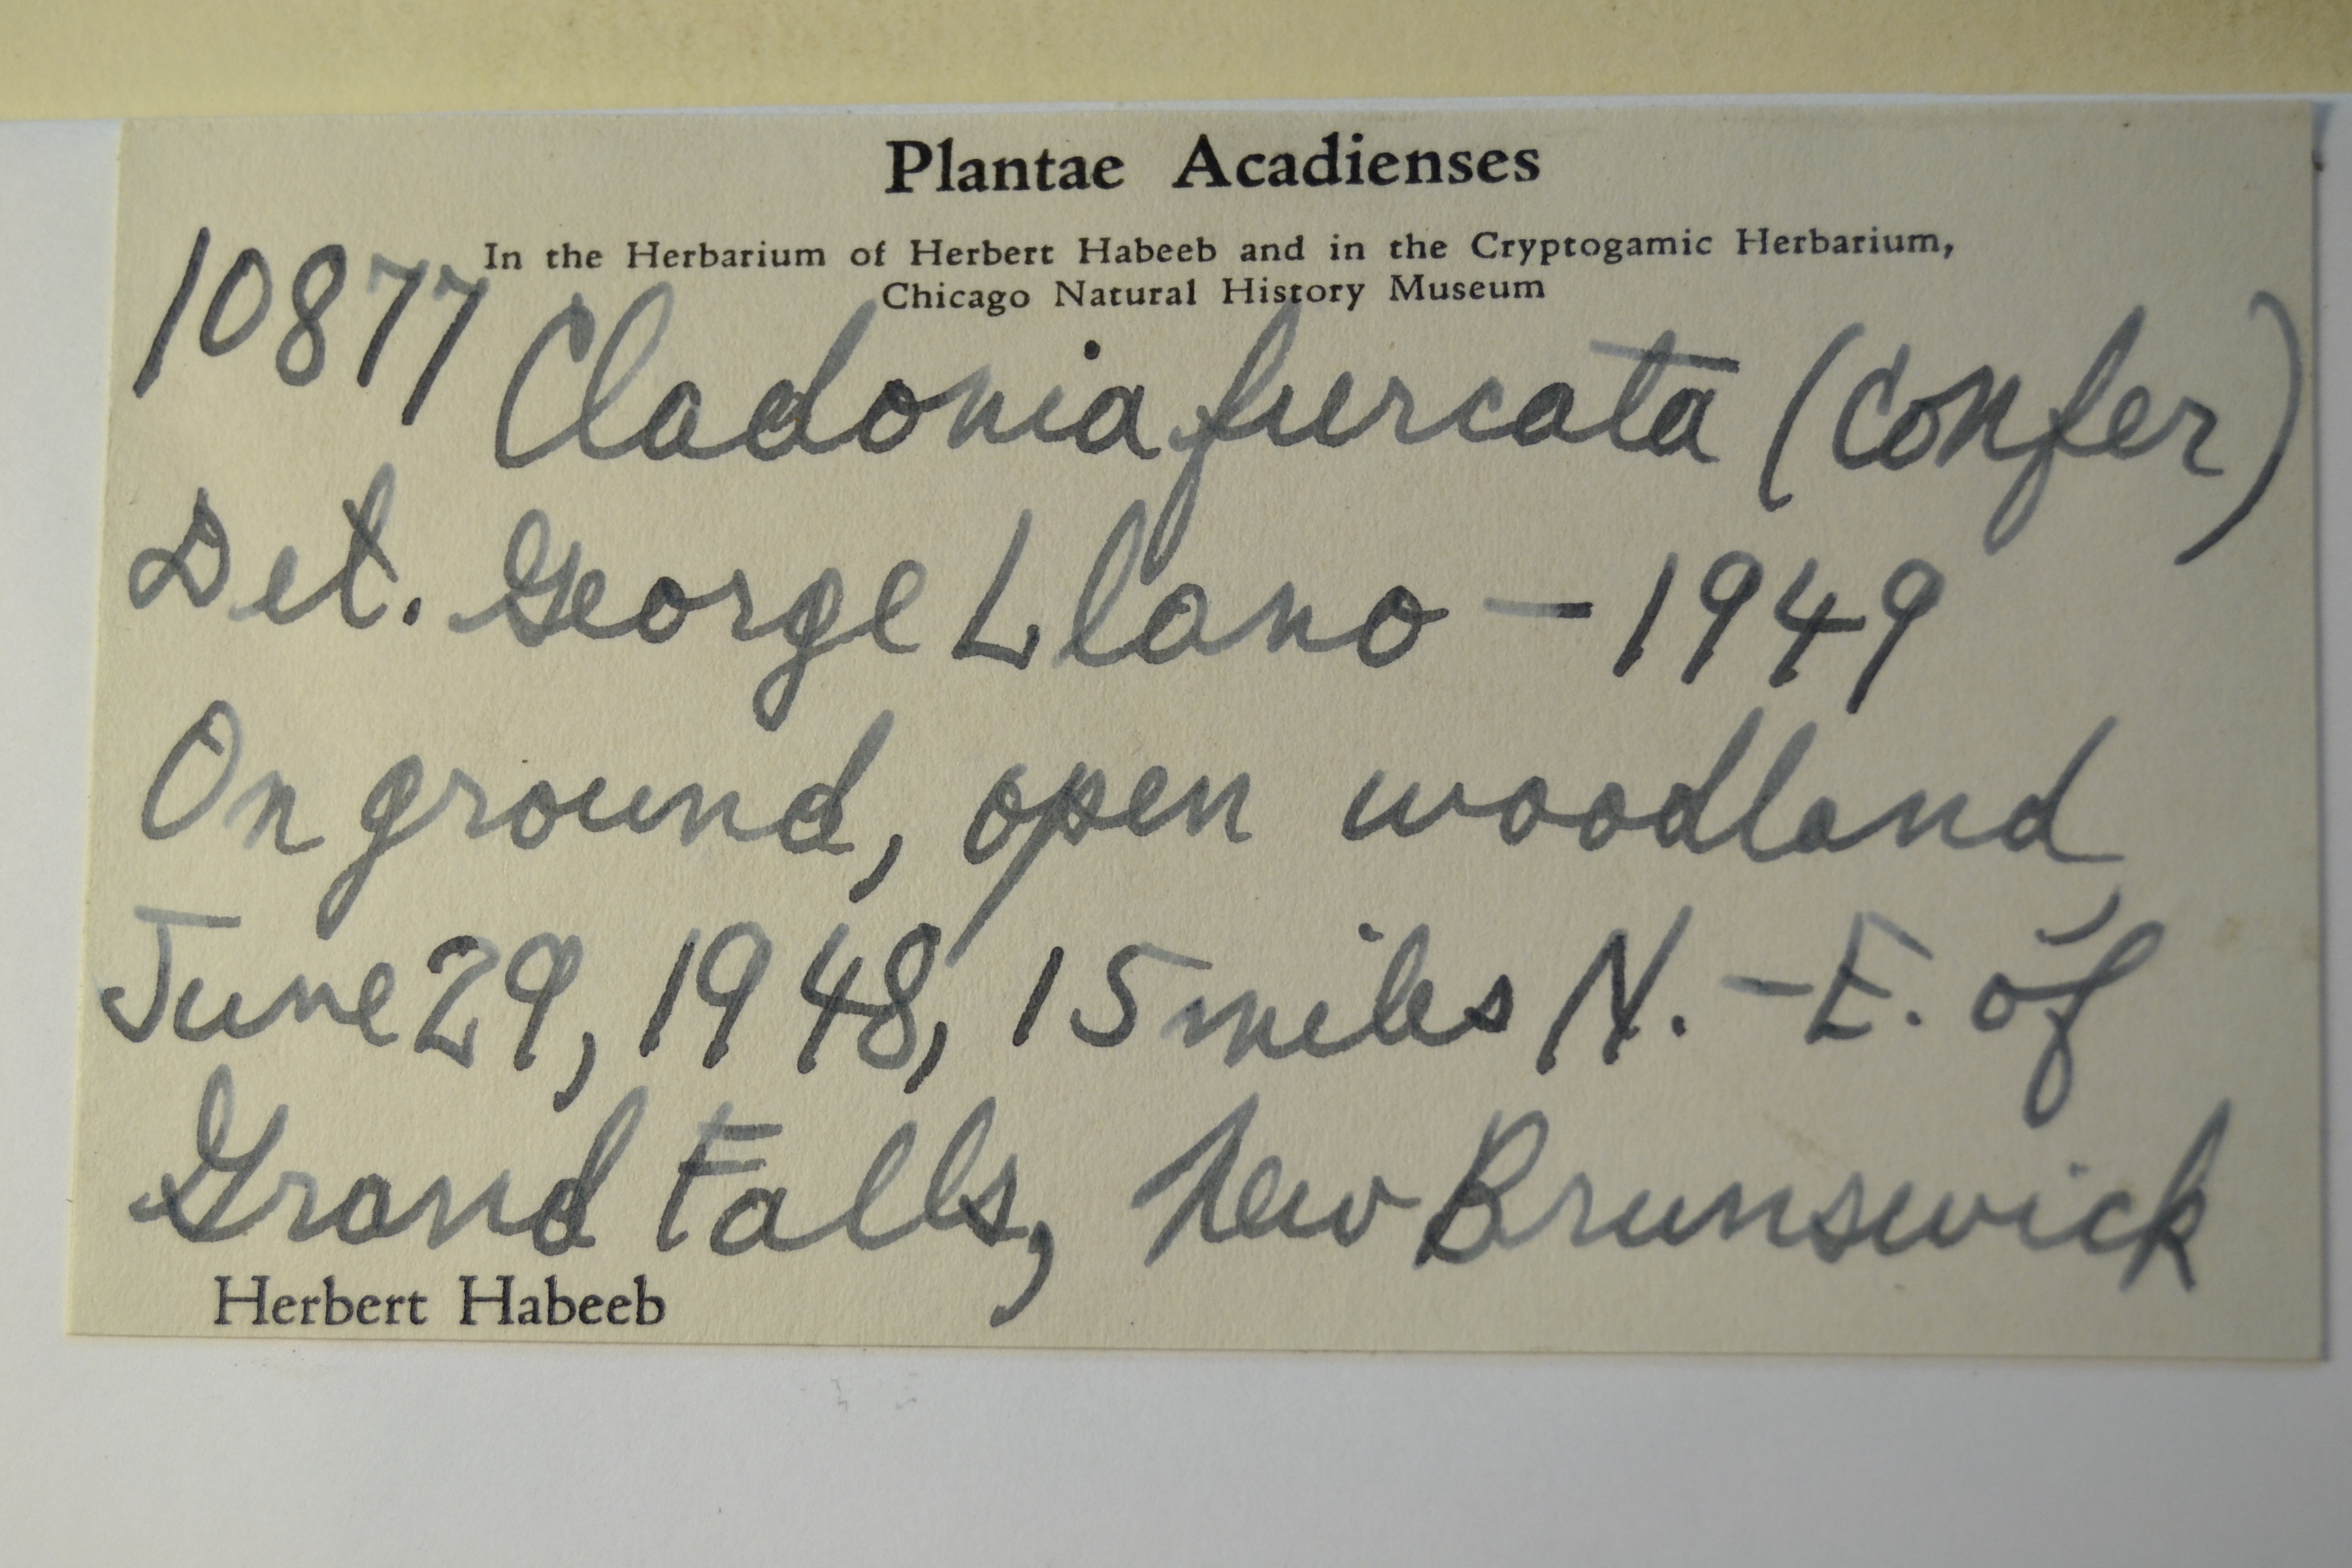 Plantae Acadienses
In the Herbarium of Herbert Habeeb and in the Cryptogamic Herbarium,
Chicago Natural History Museum
10877 Cladonia furcata (Confer)
Det. George Llano - 1949
On ground, open woodland,
June 29, 1948, 15 miles N.-E. of
Grand Falls, New Brunswick
Herbert Habeeb